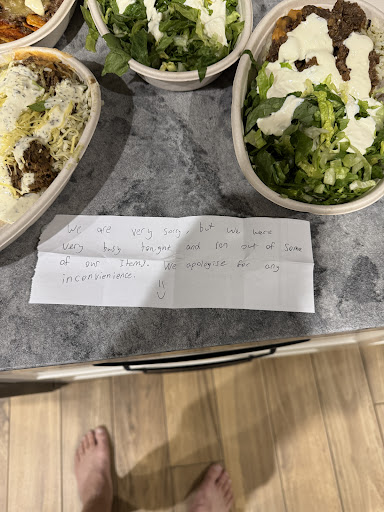 We are very sorry, but we were
very busy tonight and ron out of some
of our items. We apologise for any
inconvienience.
=)